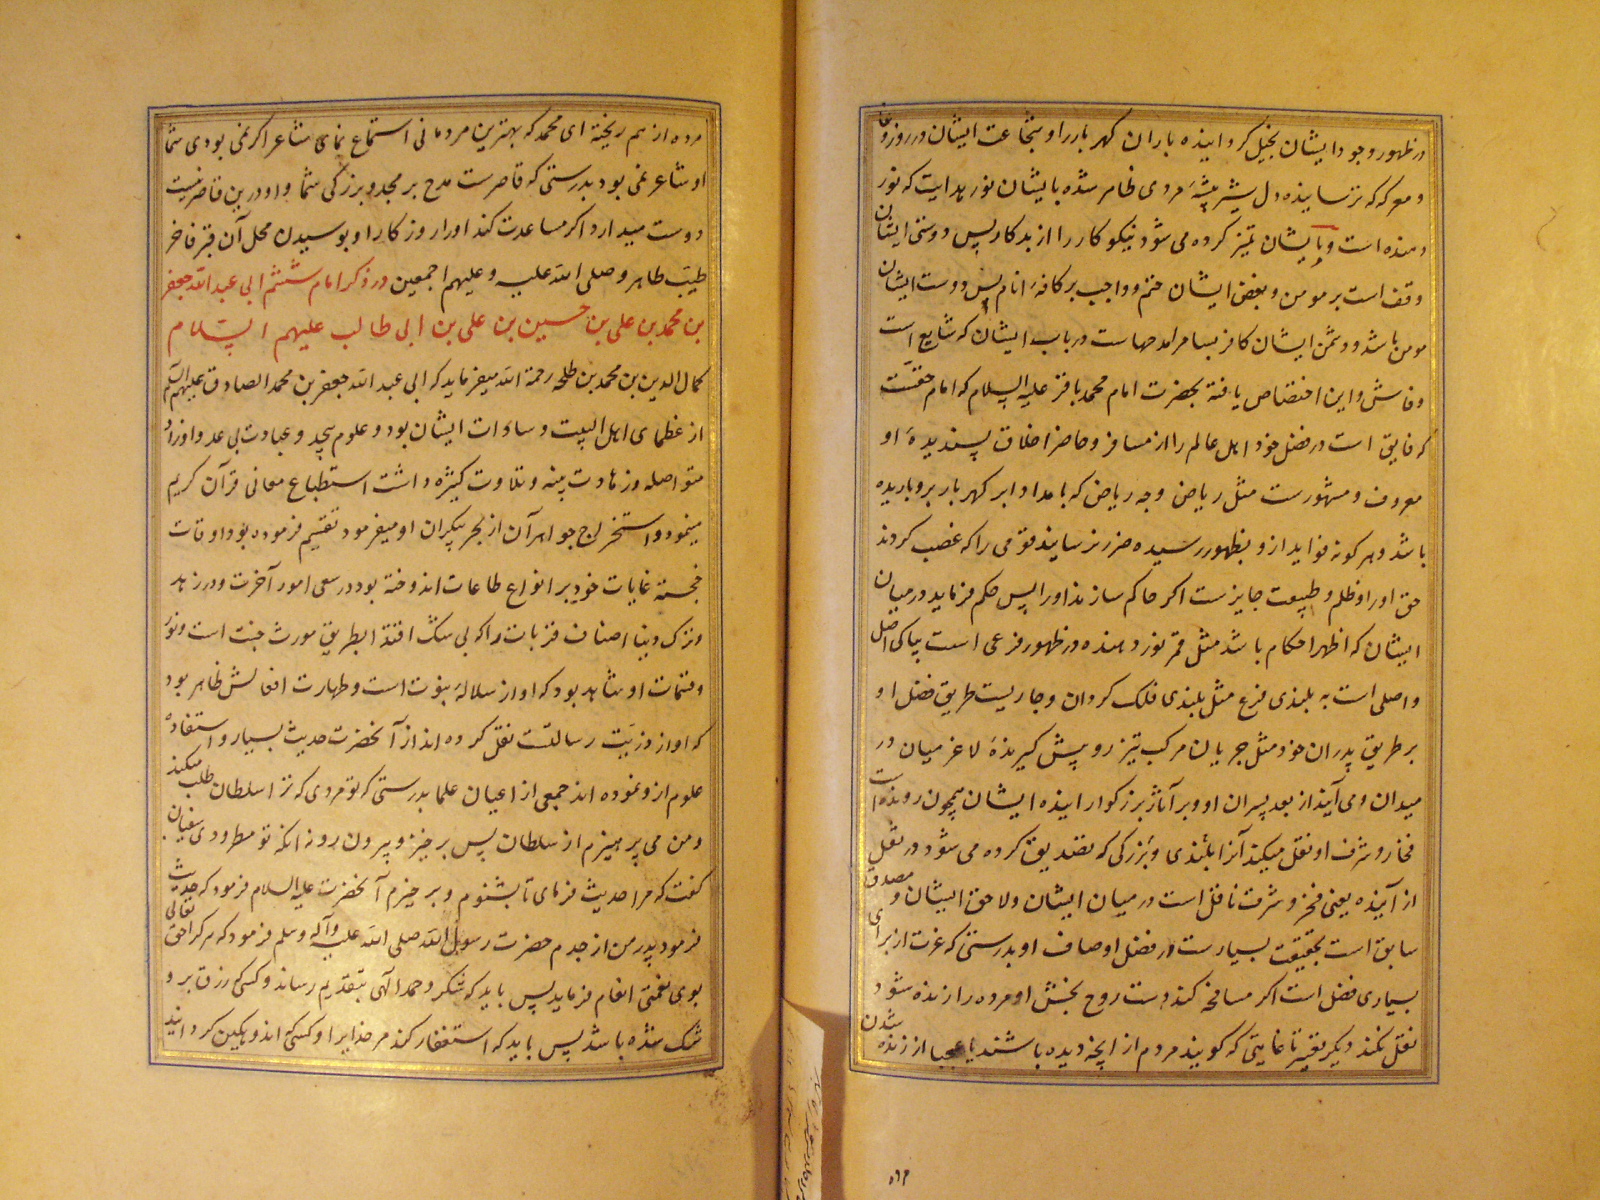 در ظهور وجود ایشان بخیل کرداینده باران کهر بار را و شجاعت ایشان در روز وغا
و معرکه که ترساینده دل شیر بیشهٔ مردی ظاهر شده بایشان نور هدایت که نور
دهنده است و بایشان تمیز کرده می شود نیکوکار را از بدکار پس دوستی ایشان
وقف است بر مومن و بغض ایشان حتم و واجب بر کافهٔ انام پس دوست ایشان
مومن باشد و دشمن ایشان کافر بسا مر امدحهاست در باب ایشان که شایع است
و فاش و این اختصاص یافته بحضرت امام محمد باقر علیه السلام که امام حقست
که فایق است در فضل خود اهل عالم را از مسافر و حاضر اخلاق پسندیدهٔ او
معروف و مشهورست مثل ریاض و چه ریاض که بامداد ابر کهربار برو باریده
باشد و هر کونه فواید ازو بظهور رسیده ضرر نرسایند قومی را که غضب کردند
حق اورا و ظلم و طبیعت جایزست اکر حاکم سازند اورا پس حکم فرماید در میان
ایشان که اظهر احکام باشد مثل قمر نور دهنده در ظهور فرعی است بپاکی اصل
و اصلی است به بلندی فرع مثل بلندی فلک کردان و جاریست طریق فضل او
بر طریق پدران خود مثل جریان مرکب تیز رو پیش کیرندهٔ لاغر میان در
میدان و می آیند از بعد پسران او و بر آثار بزرکوار اینده ایشان همچون رونده است
فخار و شرف او نقل میکند آنرا بلندی و بزرکی که تصدیق کرده می شود در نقل
از آینده یعنی فخر و شرف ناقل است در میان ایشان و لاحق ایشان و مصدق
سابق است بحقیقت بسیارست در فضل اوصاف او بدرستی که عزت از برای
بسیاری فضل است اکر مسافحه کند دست روح بخش او مرده را زنده شود
نقل نکند دیکر بقبر تا غایتی که کویند مردم از آنچه دیده باشند یا عجبا از زنده شدن
مرده از هم ریخته ای محمد که بهترین مردمانی استماع نمای شاعر اکر نمی بودی شما
او شاعر نمی بود بدرستی که قاصرست مدح بر مجد و بزرکی شما و او درین قاصر نیست
دوست میدارد اکر مساعدت کند اورا روزکار او بوسیدن محل آن قبر فاخر
طیب طاهر و صلی الله علیه و علیهم اجمعین در ذکر امام ششم ابی عبد الله جعفر
بن محمد بن علی بن حسین بن علی بن ابی طالب علیهم السلام
کمال الدین بن محمد بن طلحه رحمة الله میفرماید که ابی عبد الله جعفر بن محمد الصادق علیهم السلام
از عظمای اهل البیت و سادات ایشان بود و علوم بیحد و عبادت بی عد و اوراد
متواصله و زهادت بینه و تلاوت کثیره داشت استطباع معانی قرآن کریم
مینمود و استخراج جواهر آن از بحر بیکران او میفرمود تقسیم فرموده بود اوقات
خجسته غایات خود بر انواع طاعات اندوخته بود در سعی امور آخرت و در زهد
و ترک دنیا اصناف قربات را که بی شک اقتدا بطریق مورث جنت است و نور
و قسمات او شاهد بود که او از سلالهٔ نبوت است و طهارت افعالش ظاهر بود
که او از ذریت رسالتست نقل کرده اند از آنحضرت حدیث بسیار و استفاده
علوم ازو نموده اند جمعی از اعیان علما بدرستی که تو مردی که ترا سلطان طلب میکند
و من می پرهیزم از سلطان پس برخیز و بیرون رو نه آنکه تو مطرودی سفیان
کفت که مرا حدیث فرمای تا بشنوم و برخیزم آنحضرت علیه السلام فرمود که حدیث
فرمود پدر من از جدم حضرت رسول الله صلی الله علیه وآله وسلم فرمود که هر کرا حق تعالی
بوی نعمتی انعام فرماید پس باید که شکر و حمد الهی بتقدیم رساند و کسی که رزق برو
تنک شده باشد پس باید که استغفار کند مر خدایرا و کسی که اندوهکین کرداند
۵۶۲